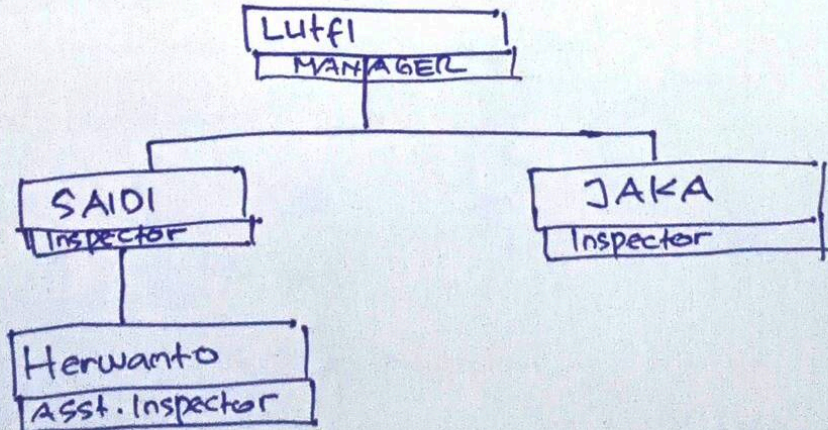 Lutfi
MANAGER
SAIDI
Inspector
JAKA
Inspector
Herwanto
Asst. Inspector